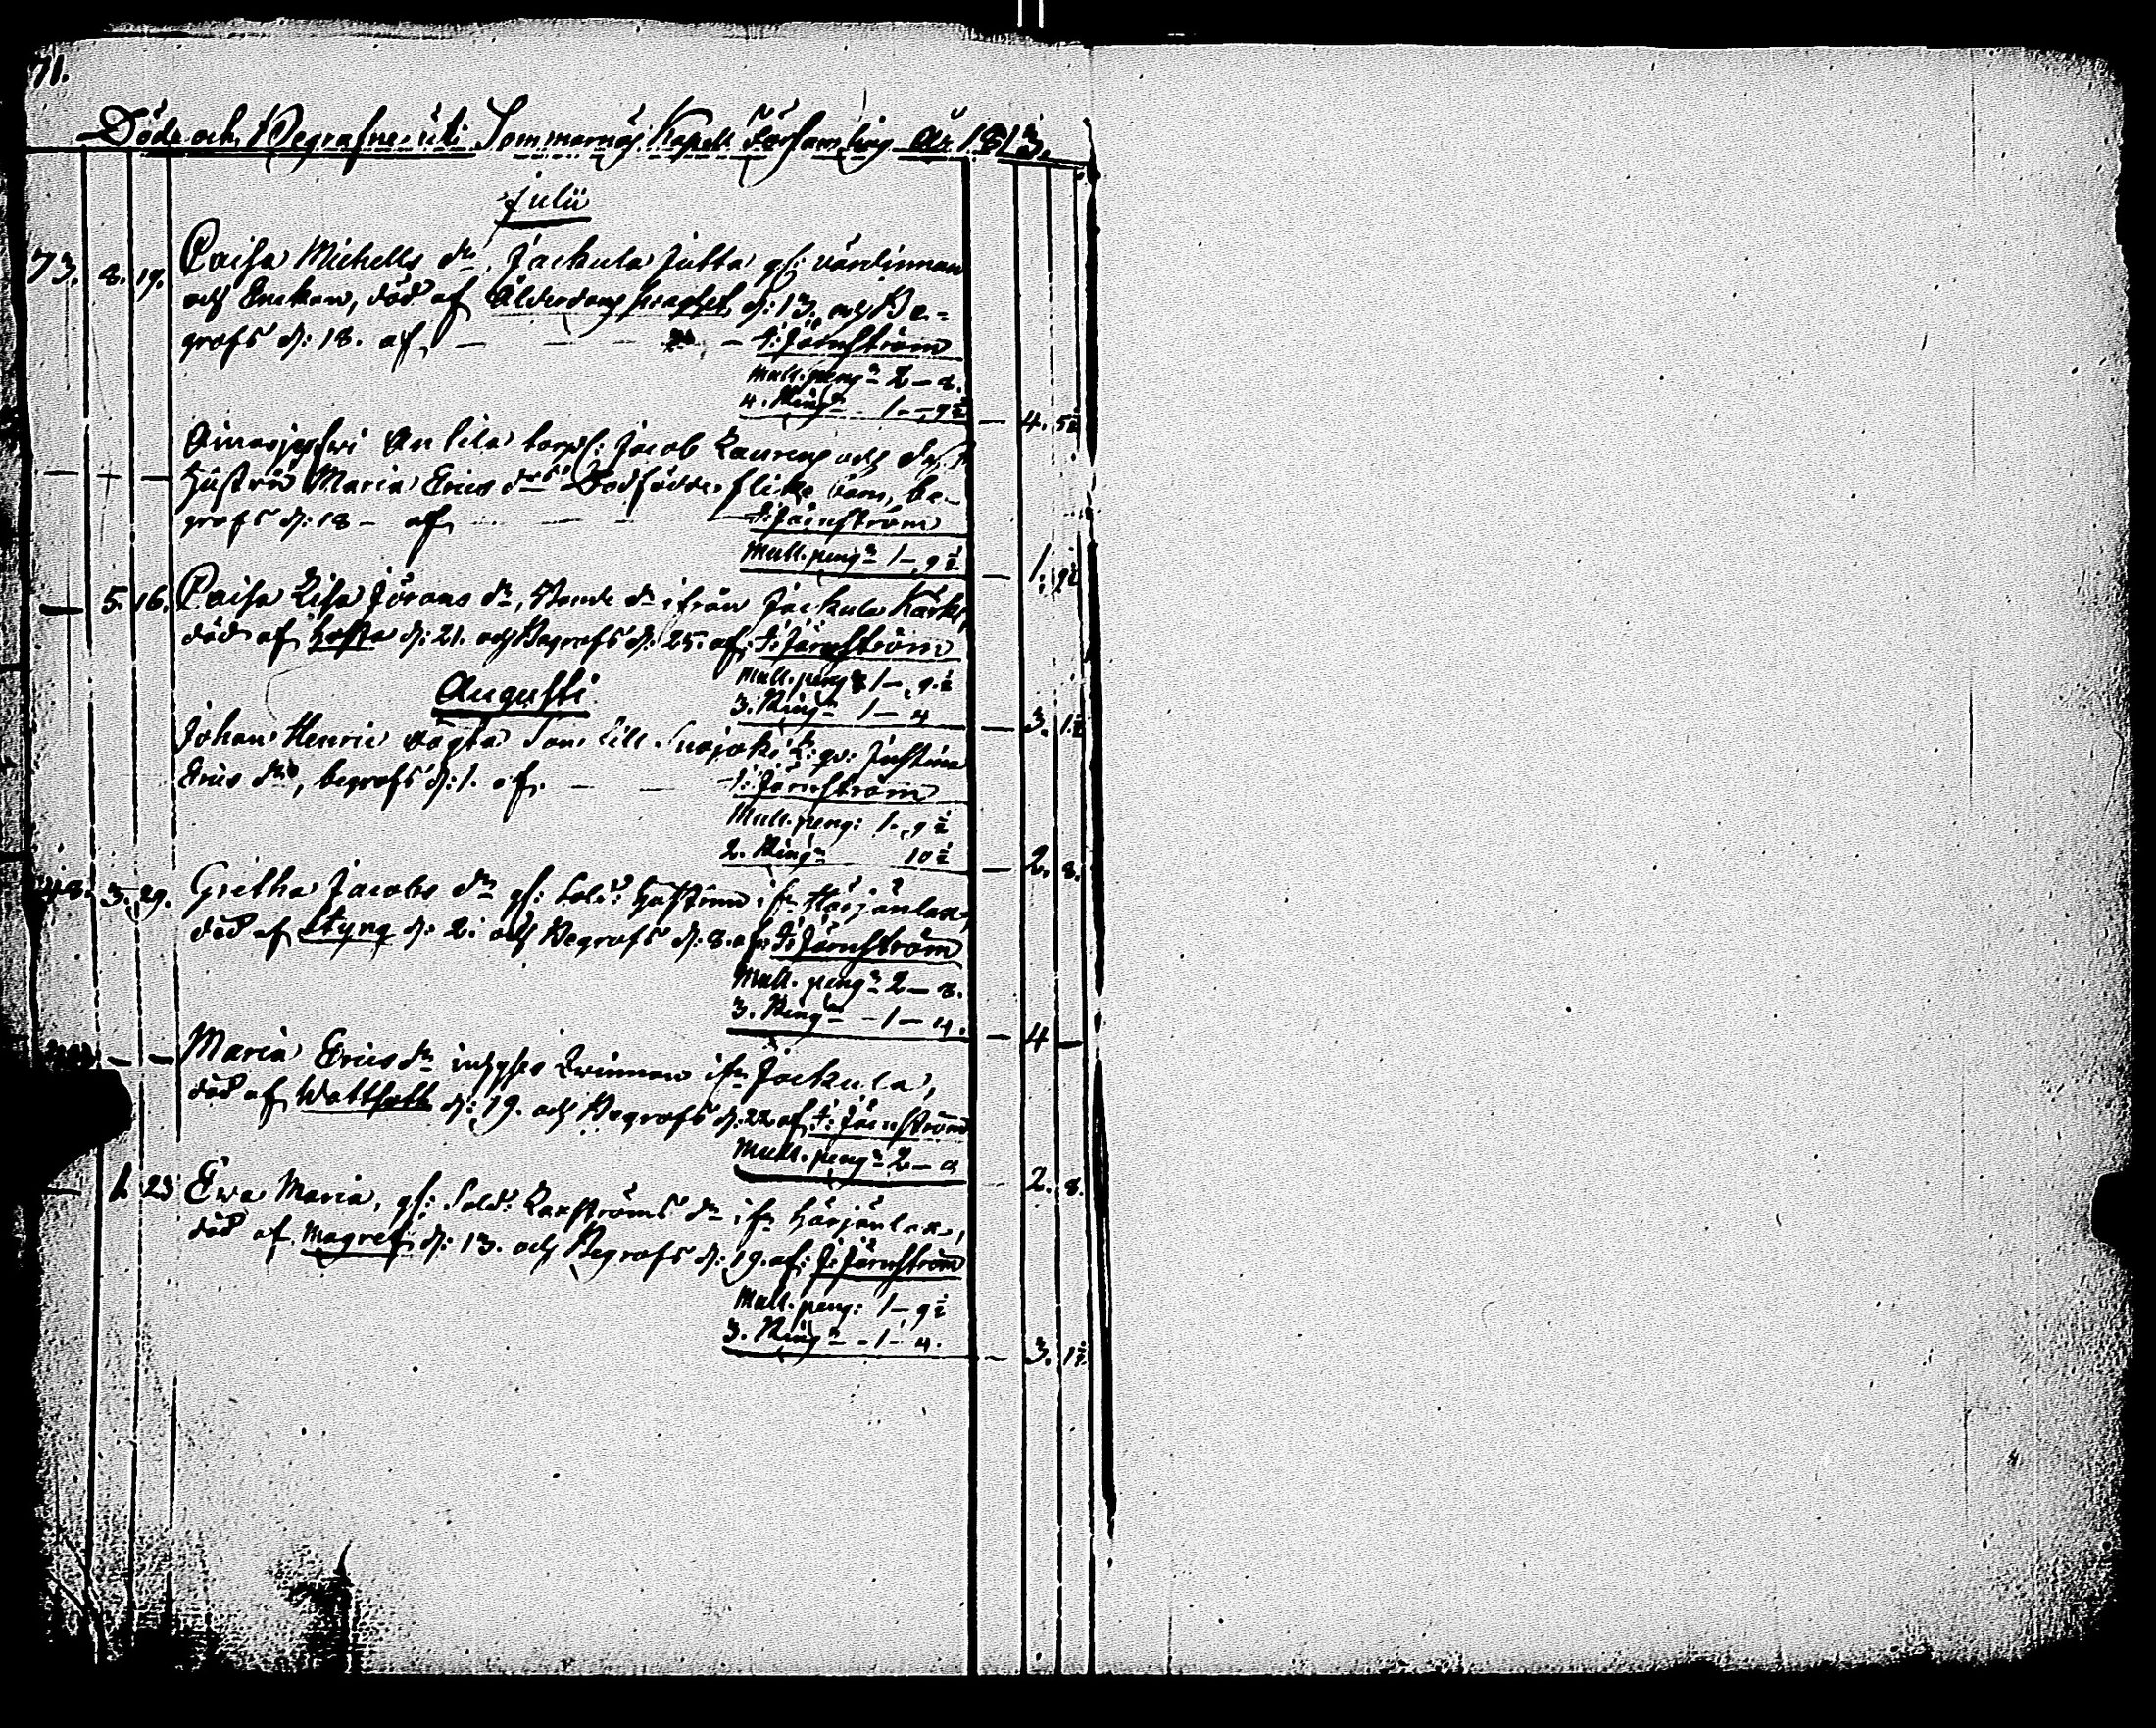 71.
Döde och Begrafne uti Sommernäs Kapell Församling År 1813.
Julii
73. 8. 19. Caisa Michells dr, Jackula Jutta gl: värdinnan
och Enckan, död af Ålderdoms d: 13. och Be-
grofs d: 18. af J: Järnström
Mull. peng:r 2 – 8.
4. Ring:r 1 – 9½ – 4. 5½
Jacob Laurens och dess
Hustru Maria Erics dr:s Dödfödde flicke barn, be-
grofs d: 18 – af J: Järnström
Mull. peng:r 1 – 9½ – 1. 9½
– 5. 16. Caisa Lisa Jörans dr, ifrån Jackula
död af Hosta d: 21. och Begrofs d: 25. af J: Järnström
Mull. peng:r 1 – 9½
3. Ring:r 1 – 4 – 3. 1½
Augusti
Johan Henric oägta Son till qv: Justina
Erics dr, begrofs d: 1. af. J: Järnström
Mull. peng: 1. 9½
2. Ring:r 10½ – 2. 8.
48. 3. 29. Gretha Jacobs dr gl: Sold: Hustrun ifr: Härjänlax,
död af Styng d: 2. och Begrofs d: 8. af: J: Järnström
Mull. peng:r 2 – 8.
3. Ring:r – 1 – 4. – 4 –
– – Maria Erics dr inhyses Qvinnan ifr: Jackula,
död af Wattsott d: 19. och Begrofs d: 22 af J: Järnström
Mull. peng:r 2 – 8 2. 8.
– 1. 23 Ewa Maria, gl: Sold: Laxströms dr ifr: Härjänlax,
död af Magref d: 13. och Begrofs d: 19. af: J: Järnström
Mull. peng: 1 – 9½
3. Ring:r – 1 – 4. – 3. 1½